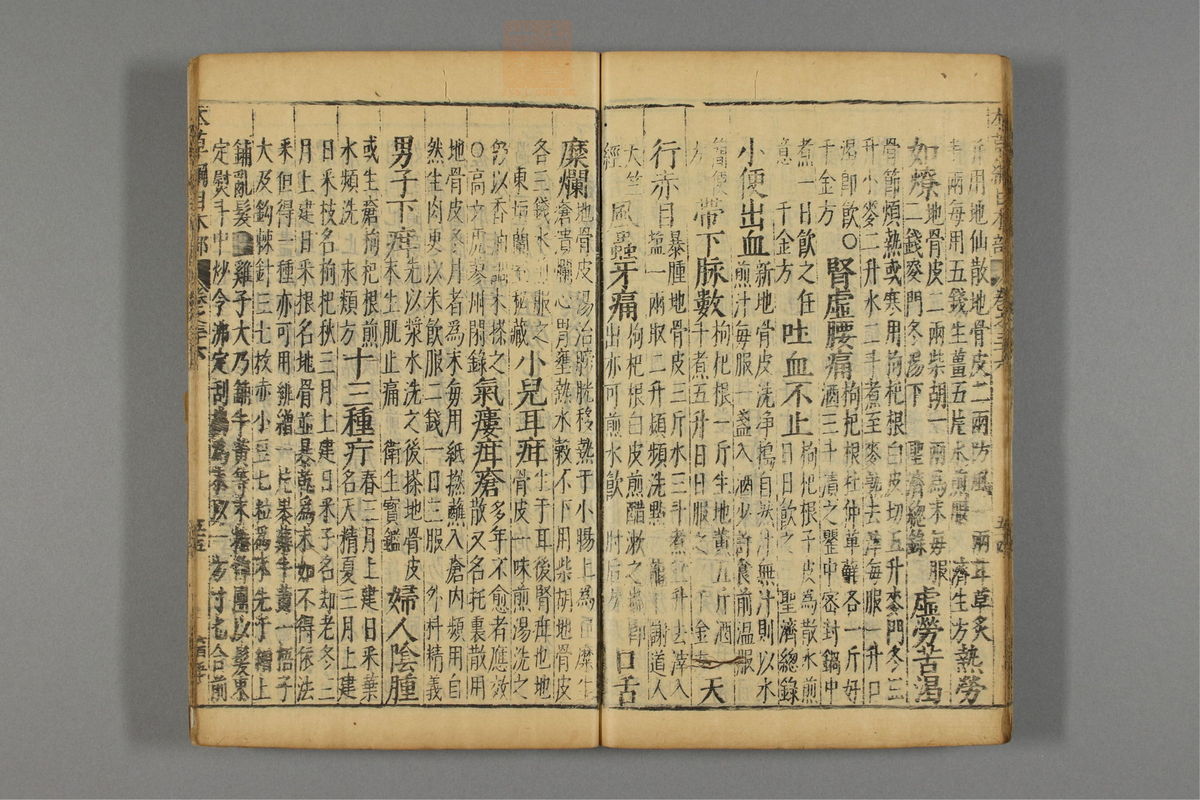 用地仙散地骨皮二兩防風一兩甘草炙
半兩每用五錢生薑五片水煎服 濟生方熱勞
如燎地骨皮二兩柴胡一兩為末每服
二錢麥門冬湯下 聖濟總錄 虛勞苦渴
骨節煩熱或寒用枸杞根白皮切五升麥門冬三
升小麥二升水二斗煮至麥熟去滓每服一升口
渴即飲○腎虛腰痛枸杞根杜仲萆薢各一斤好
千金方 酒三斗漬之罌中密封鍋中
煮一日飲之任 吐血不止枸杞根子皮為散水煎
意 千金方 日日飲之 聖濟總錄
小便出血新地骨皮洗淨搗自然汁無汁則以水
煎汁每服一盞入酒少許食前溫服
簡便 帶下脉數枸杞根一斤生地黃五斤酒
方 千煮五升日日服之 千金 天
行赤目暴腫地骨皮三斤水三斗煮三升去滓入
塩一兩取二升頻頻洗點 謝道人
大竺 風蟲牙痛枸杞根白皮煎醋漱之蟲即
經 出亦可煎水飲 肘后 口舌
糜爛地骨皮湯治膀胱移熱于小腸上為口糜生
瘡潰爛心胃壅熱水穀不下用柴胡地骨皮
各三錢水煎服之 小兒耳疳生于耳後腎疳也地
東垣蘭室秘藏 骨皮一味煎湯洗之
仍以香油調末搽之 氣瘻疳瘡多年不愈者應效
○高文虎蓼州閒錄 散又名托裏散用
地骨皮冬月者為末每用紙撚蘸入瘡內頻用自
然生肉更以米飲服二錢一日三服 外科精義
男子下疳先以漿水洗之後搽地骨皮
末生肌止痛 衛生寶鑑 婦人陰腫
或生瘡枸杞根煎 十三種疔春三月上建日采葉
水頻洗 永類方 名天精夏三月上建
日采枝名枸杞秋三月上建日采子名却老冬三
月上建日采根名地骨並暴乾為末如不得依法
采但得一種亦可用緋繒一片裹藥牛黃一梧子
大及鈎棘針三七枚赤小豆七粒為末先于繒上
鋪亂髮雞子大乃鋪牛黃等末卷作團以髮束
定熨斗中炒令沸定刮為末又一方寸匕合前
本草綱目木部 卷之三十六